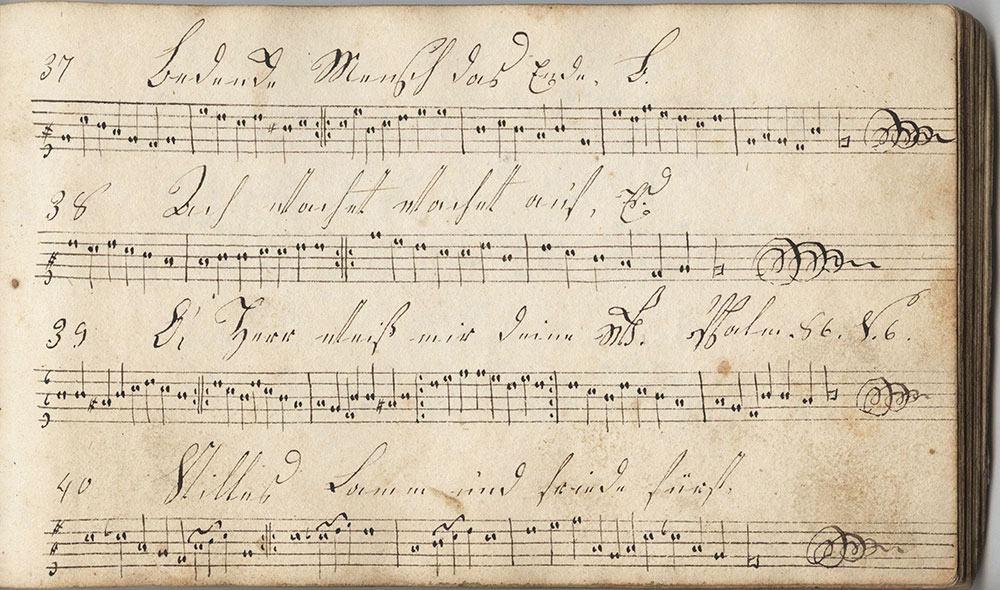 37 Bedencke Mensch das Ende. E.
38 Ach wachet wachet auf, E.
39 O, Herr weiß mir deine W. Psalm. 86. V. 6.
40 Stilles Lamm und friede fürst.